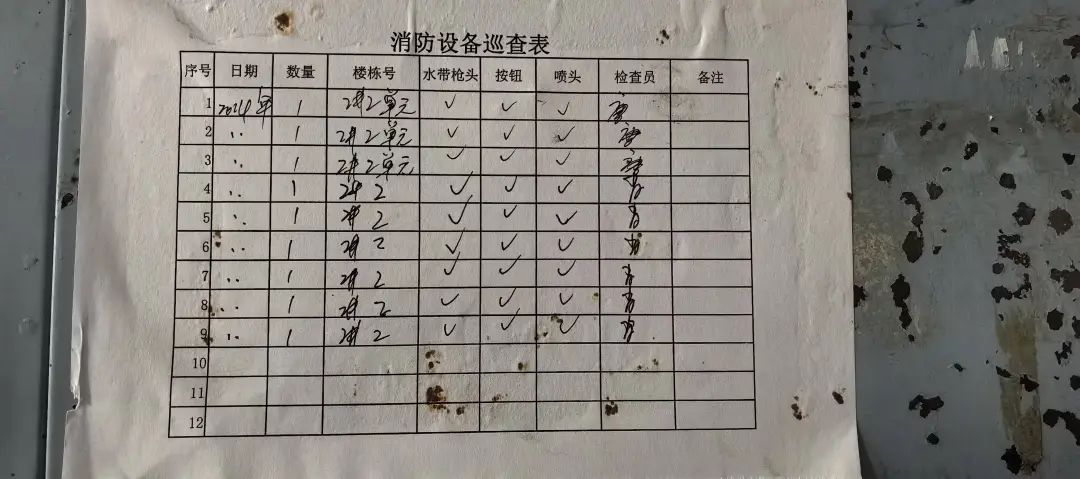 消防设备巡查表
序号 日期 数量 楼栋号 水带枪头 按钮 喷头 检查员 备注
1 2024年 1 2#2单元 ✓ ✓ ✓
2 ·· 1 2#2单元 ✓ ✓ ✓
3 ·· 1 2#2单元 ✓ ✓ ✓
4 ·· 1 2# 2 ✓ ✓ ✓
5 ·· 1 2# 2 ✓ ✓ ✓
6 ·· 1 2# 2 ✓ ✓ ✓
7 ·· 1 2# 2 ✓ ✓ ✓
8 ·· 1 2# 2 ✓ ✓ ✓
9 ·· 1 2# 2 ✓ ✓ ✓
10
11
12